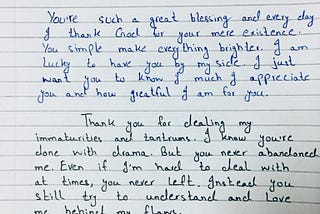 You're such a great blessing and every day
I thank God for your mere existence.
You simple make everything brighter. I am
Lucky to have you by my side. I just
want you to know I much I appreciate
you and how greatful I am for you.
Thank you for dealing my
immaturities and tantrums. I know you're
done with drama. But you never abandoned
me. Even if I'm hard to deal with
at times, you never left. Instead you
still try to understand and love
me behind my flaws.